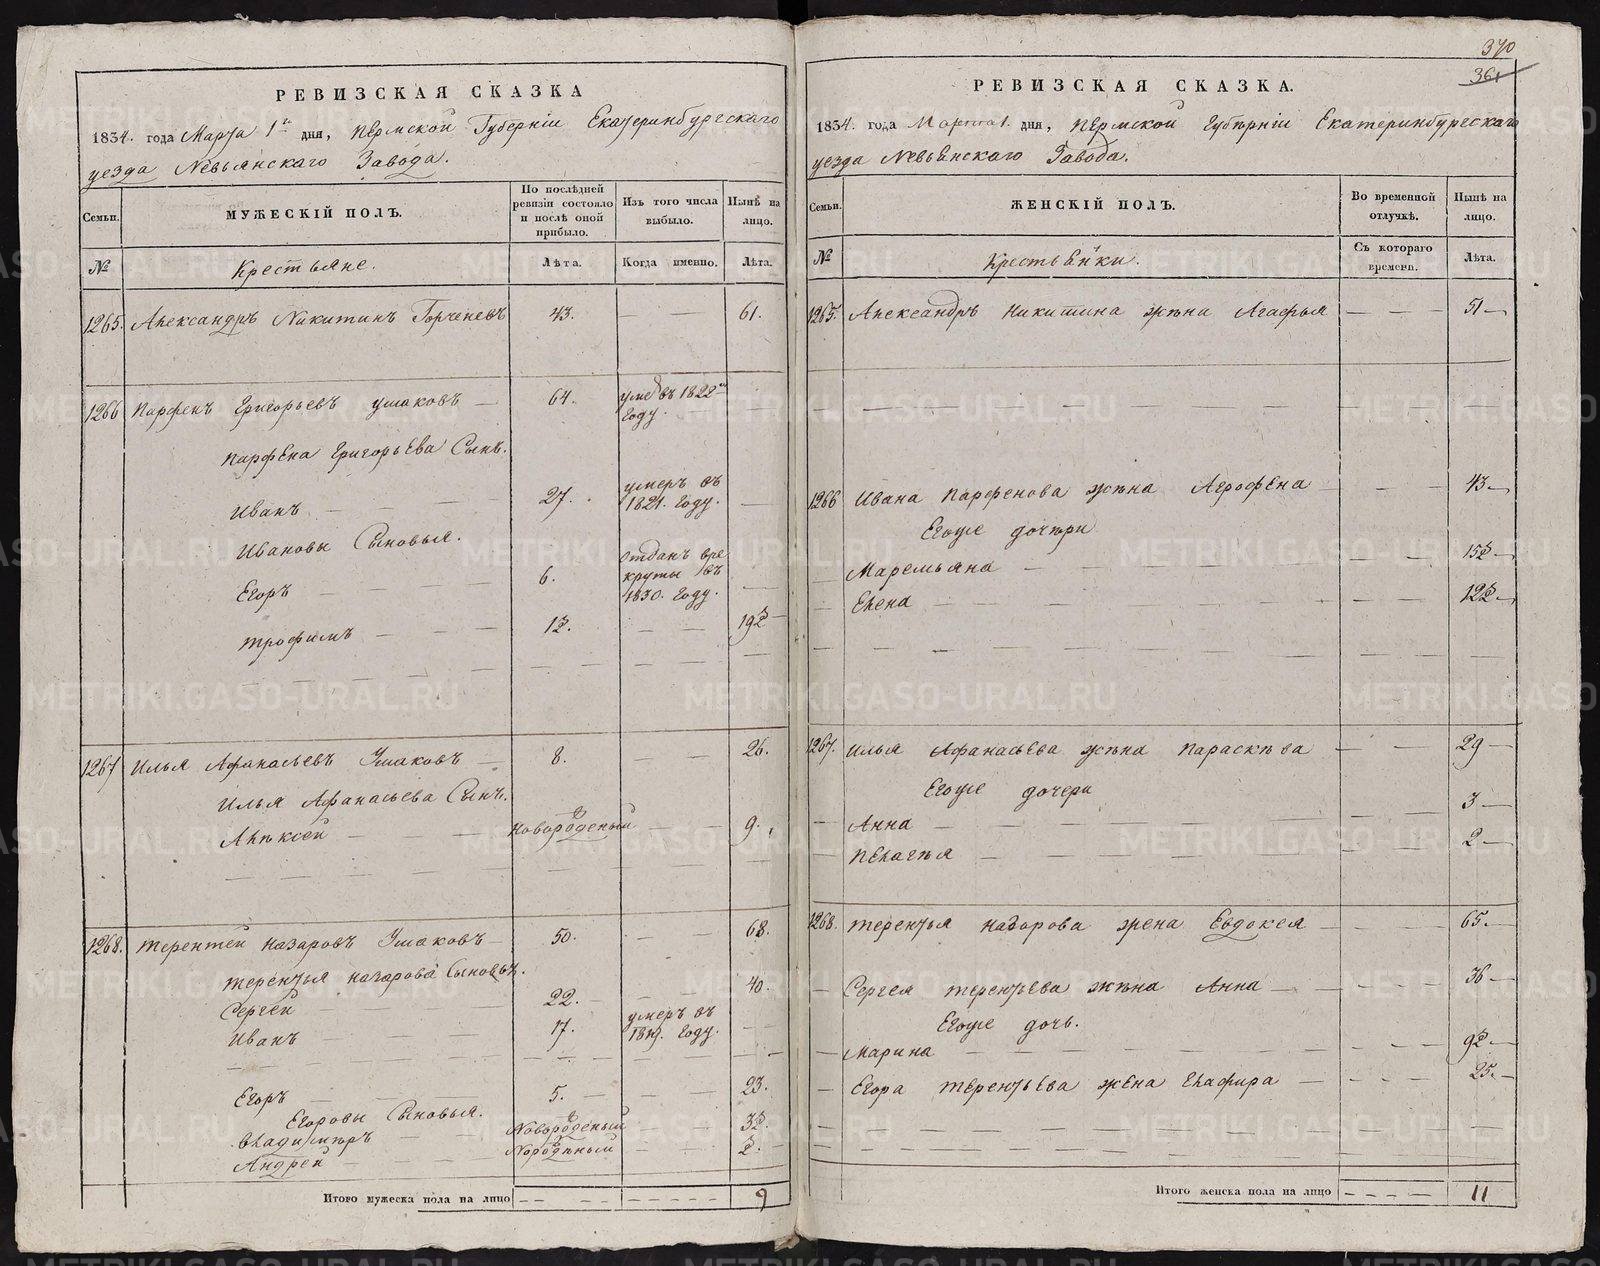 РЕВИЗСКАЯ СКАЗКА
1834. года Марта 1го дня, Пермской Губерніи Екатеринбургскаго
уезда Невьянскаго Завода.
Семьи.
МУЖЕСКІЙ ПОЛЪ.
По послѣдней ревизіи состояло и послѣ оной прибыло.
Изъ того числа выбыло.
Нынѣ на лицо.
№
Крестьяне.
Лѣта.
Когда именно.
Лѣта.
1265. Александръ Никитинъ 43. — — 61.
1266 Парфенъ Григорьевъ Ушаковъ — 64. умеръ въ 1822м году.
Парфена Григорьева Сынъ.
Иванъ — — 27. умеръ въ 1821. году.
Ивановы Сыновья.
Егоръ — — 6. отданъ в рекруты въ 1830. году.
Трофимъ — — 1½. — — 19½
1267 Илья Афанасьевъ Ушаковъ — 8. — — 26.
Илья Афанасьева Сынъ.
Алѣксей — — Новорожденый — 9.
1268. Терентей Назаровъ Ушаковъ — 50. — — 68.
Терентья Назарова Сыновья.
Сергей — 22. — — 40.
Иванъ — 17. умеръ въ году.
Егоръ — 5. — — 23.
Егоровы Сыновья.
Владимиръ — Новорожденый 3½.
Андрей — ½.
Итого мужеска пола на лицо — — — 9
370
361
РЕВИЗСКАЯ СКАЗКА.
1834. года Марта 1. дня, Пермской Губѣрніи Екатеринбурескаго
уезда Невьянскаго Завода.
Семьи.
ЖЕНСКІЙ ПОЛЪ.
Во временной отлучкѣ.
Нынѣ на лицо.
№
Крестьянки.
Съ котораго времени.
Лѣта.
1265. Александръ Никитина жѣна Агафья — — — 51 —
1266 Ивана Парфенова жѣна Агрофена — — 43 —
Егоже дочѣри
Маремьяна — — 15½ —
Елена — — 12½ —
1267. Илья Афанасьева жѣна Параскѣва — — 29 —
Егоже дочери
Анна — — 3 —
Пелагѣя — — 2 —
1268. Терентья Назарова жена Евдокея — — 65. —
Сергея Терентьева жѣна Анна — — 36 —
Егоже дочь.
Марина — — 9½ —
Егора Терентьева жена Глафира — — 25. —
Итого женска пола на лицо — — — 11
METRIKI.GASO-URAL.RU